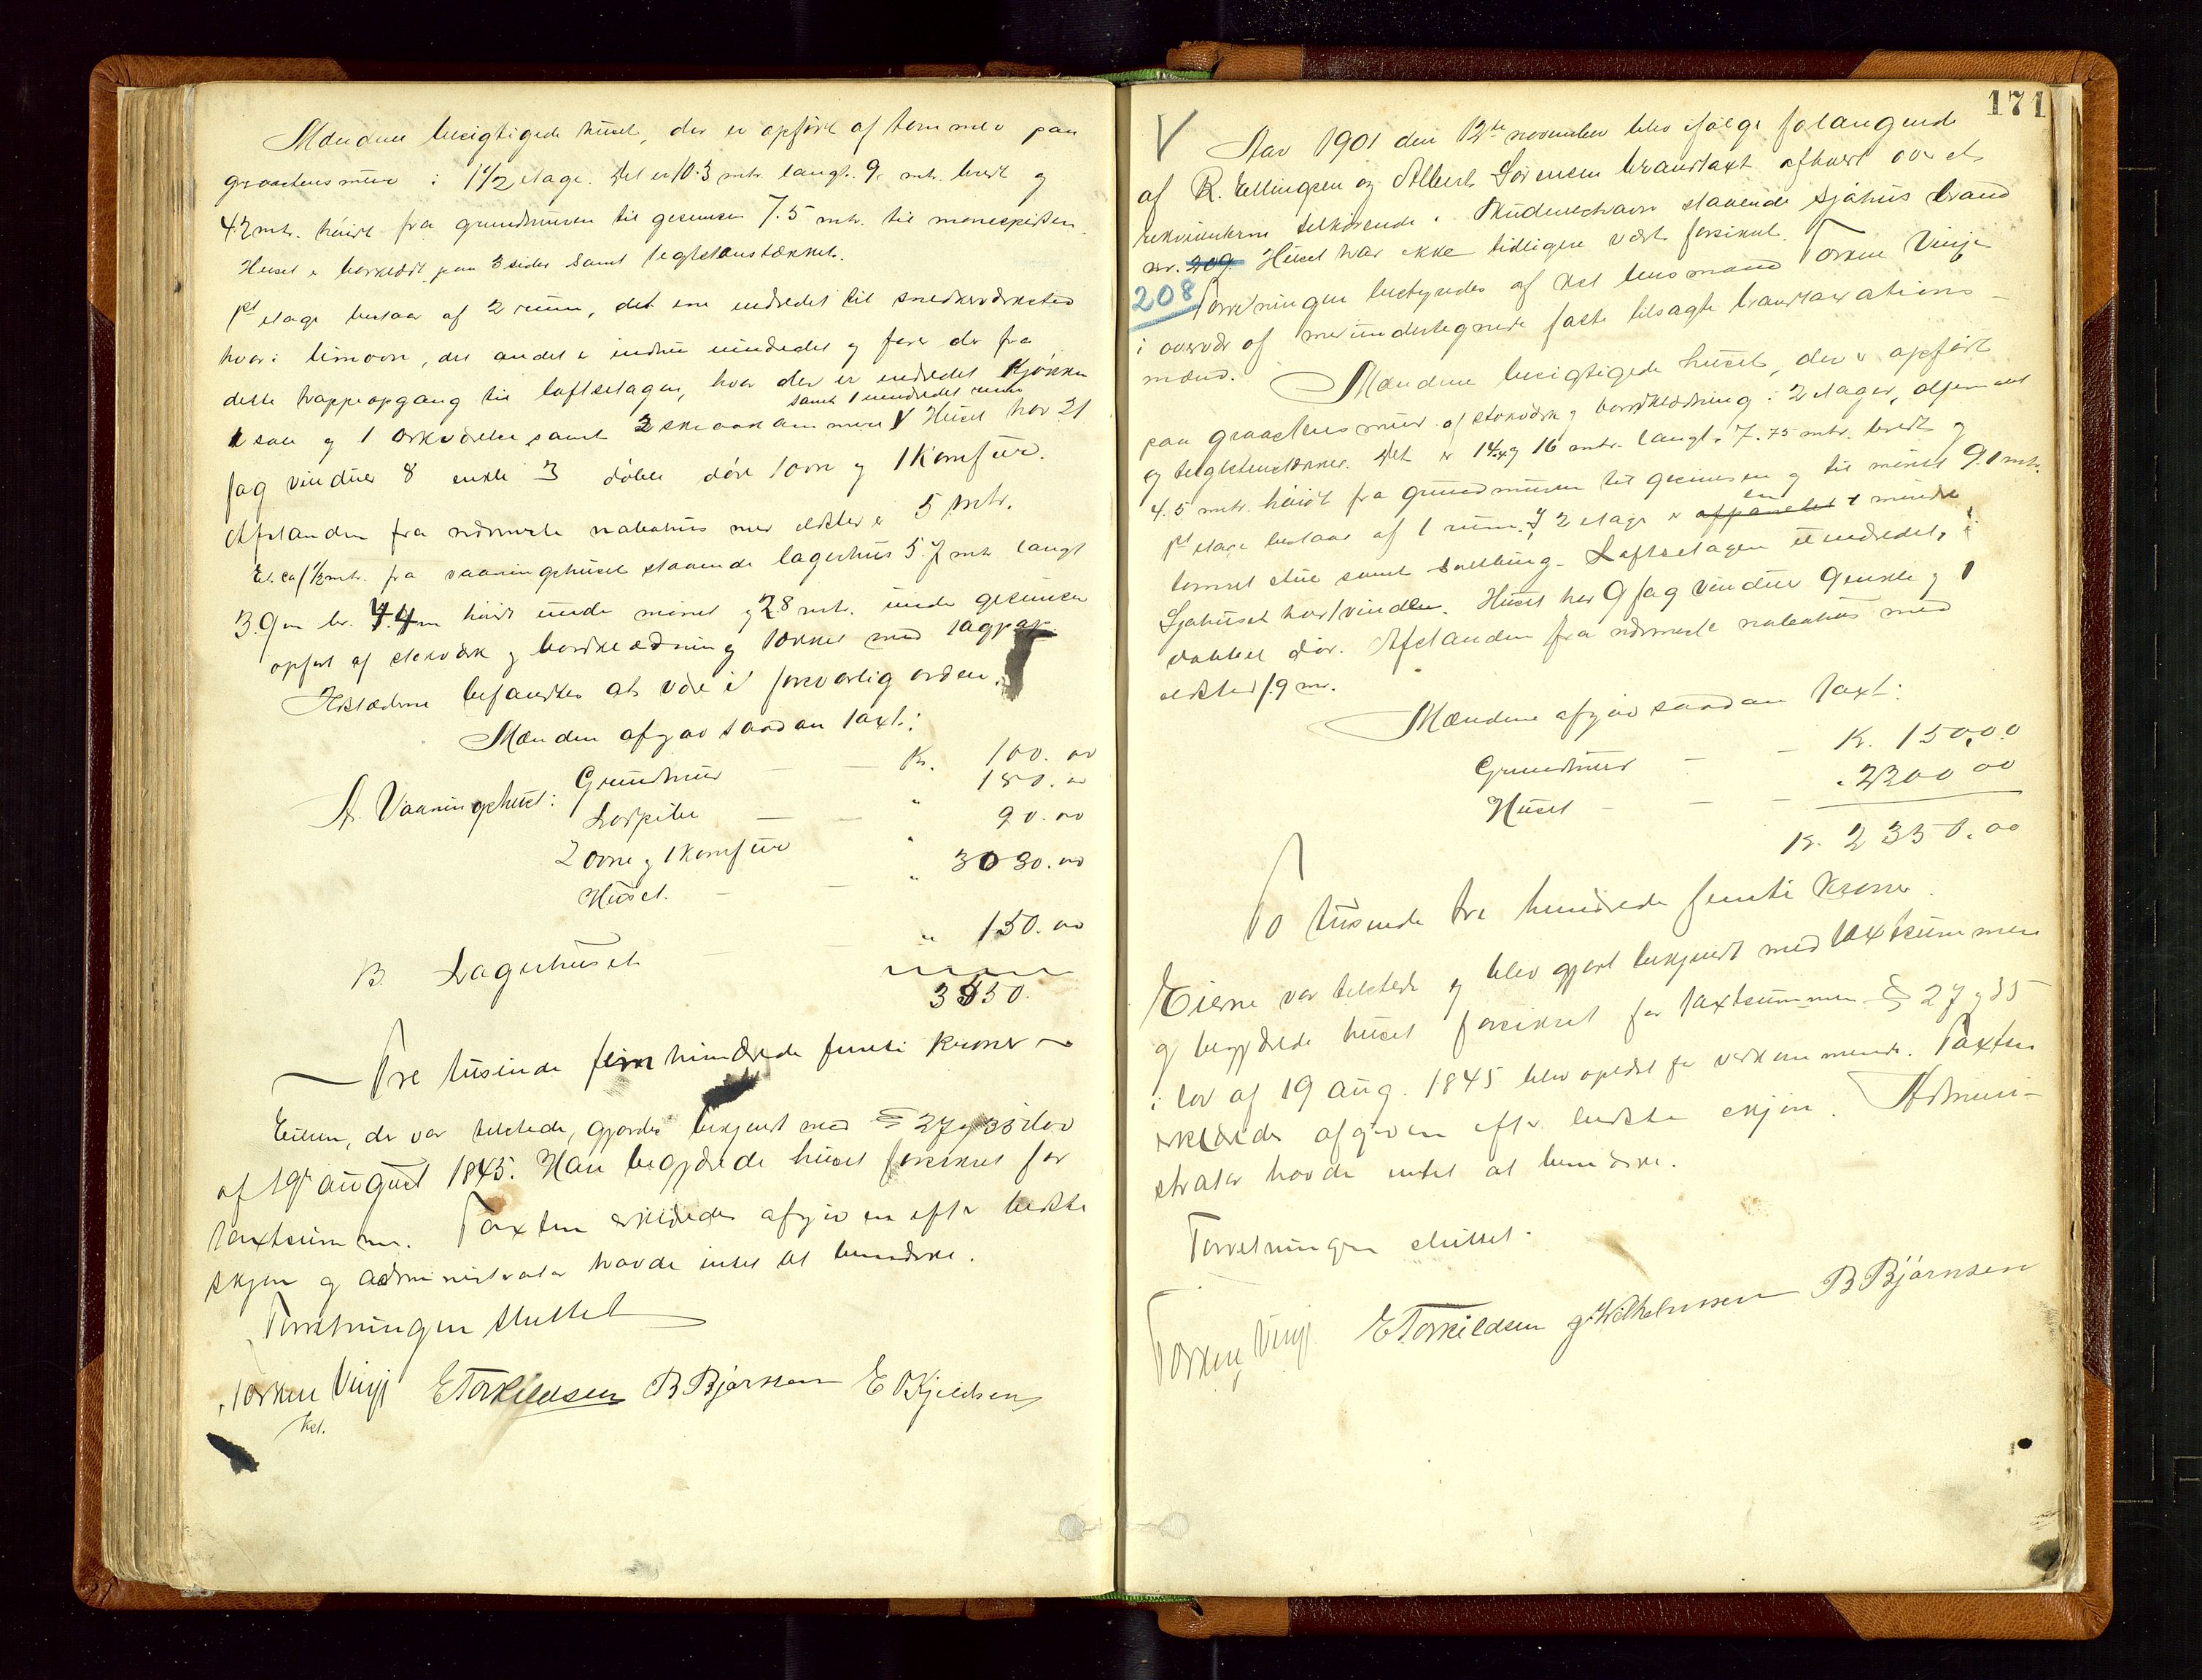 Mændene besigtigede huset, der er opført af tømmer paa
graastensmur i 1 1/2 etage. Det er 10.3 mtr. langt. 9. mtr. bredt og
4.2 mtr. høidt fra grundmuren til gesimsen 7.5 mtr. til mønespidsen.
Huset er bordklædt paa 3 sider samt teglstenstækket.
1st etage bestaar af 2 rum, det ene indredet til snedkerværksted
hvori limovn, det andet er endnu uindredet og fører der fra
dette trappeopgang til loftsetagen, hvor der er indredet kjøkken
samt 1 uindredet rum
1 sale og 1 arkværelse samt 2 skraakammere V Huset har 21
fag vinduer 8 enkle 3 doble døre 1 ovn og 1 Komfur.
Afstanden fra nærmeste nabohus med ildsted er 5 mtr.
Et ca 1 1/2 mtr. fra vaaningshuset staaende lagerhus 5.7 mtr langt
3.9 m br. 4.4 m høidt under mønet og 2.8 mtr. under gesimsen
opført af stavværk og bordklædning tækket med tagpap
Ildstæderne befandtes at være i forsvarlig orden.
Mændene afgav saadan taxt:
A. Vaaningshuset: Grundmur — — Kr. 100.00
Løspiber — — " 180.00
2 ovne og 1 Komfur " 90.00
Huset. — — " 3030.00
B. Lagerhuset — — " 150.00
3550.
— Tre tusinde fem hundrede femti kroner —
Eieren, der var tilstede, gjordes bekjendt med § 27 og 35 i lov
af 19 august 1845. Han begjærede huset forsikret for
taxtsummen. Taxten erklæredes afgiven efter bedste
skjøn og administrator havde intet at bemærke.
Forretningen sluttet
Torken Vinje E Torkildsen B Bjørnsen E Kjeldsen
kst.
171
V Aar 1901 den 12te november blev ifølge forlangende
af R. Ellingsen og Albert Sørensen brandtaxt afholdt over et
rekvirenterne tilhørende i Skudeneshavn staaende sjøhus brand
nr. 209 Huset har ikke tidligere vært forsikret.
208 Forretningen bestyredes af kst lensmand Torken Vinje
i overvær af medundertegnede faste tilsagte brandtaxations-
mænd.
Mændene besigtigede huset, der er opført
paa graastensmur af stavværk og bordklædning i 2 etager,
og teglstenstækket. Det er 14.4 og 16 mtr. langt. 7.75 mtr. bredt og
4.5 mtr. høidt fra grundmuren til gesimsen og til mønet 9.1 mtr.
en
1st etage bestaar af 1 rum. I 2 etage er afpanelet 1 mindre
tømret stue samt saltbing. Loftsetagen uindredet.
Sjøhuset har 1 vindue. Huset har 9 fag vinduer 9 enkle og 1
dobbel dør. Afstanden fra nærmeste nabohus med
ildsted 1.9 m.
Mændene afgav saadan taxt:
Grundmur — — Kr. 150.00
Huset — — — " 2200 00
Kr. 2350.00
To tusinde tre hundrede femti kroner.
Eierne var tilstede og blev gjort bekjendt med taxtsummen
og begjærede huset forsikret for taxtsummen § 27 og 35
i lov af 19 aug. 1845 blev oplæst for vedkommende. Taxten
erklæredes afgiven efter bedste skjøn. Admini-
strator havde intet at bemærke.
Forretningen sluttet.
Torken Vinje E Torkildsen G. Wilhelmsen B Bjørnsen